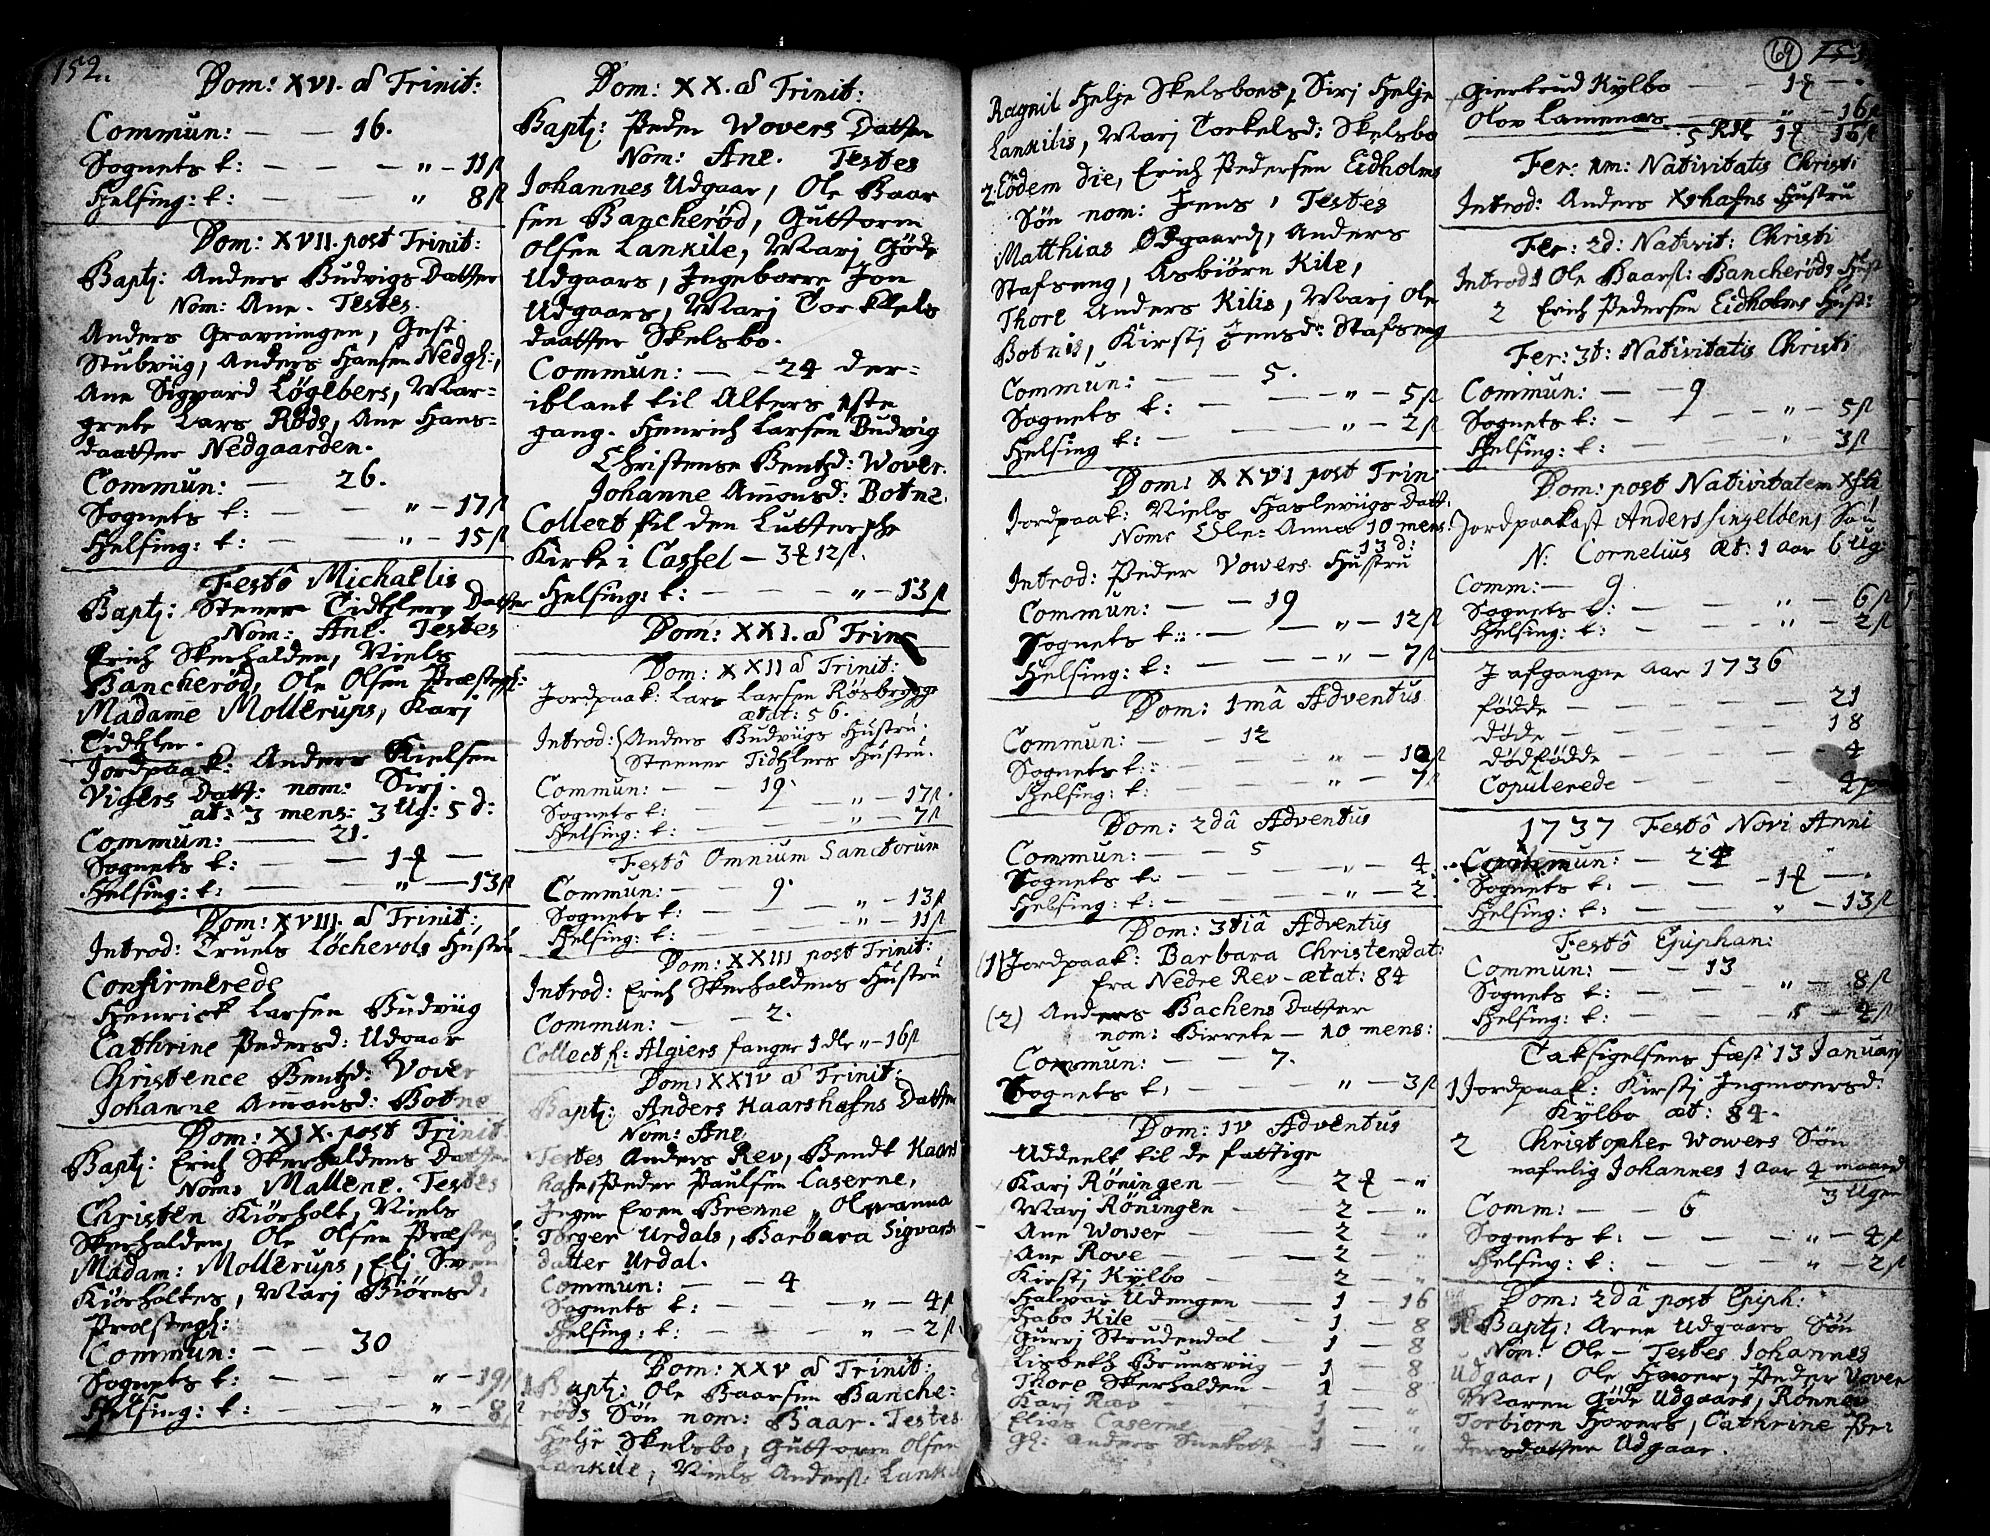 152.
Dom: XVI. à Trinit:
Commun: — — 16.
Sognets t: — — — " — 11ß
Helsing: t: — — — " 8ß
Dom: XVII. post Trinit:
Bapt: Anders Budvigs Datter
Nom: Ane. Testes.
Anders Gravningen, Gest
Stubviig, Anders Hansen Nedgh:,
Ane Sigvard Löglebers, Mar=
grete Lars Röds, Ane Hans=
daatter Nedgaarden.
Commun: — 26.
Sognets t: — — " — 17ß
Helsing: t: — — " — 15ß
Festô Michaelis
Bapt: Stener Tidtzlers Datter
Nom: Ane. Testes
Erich Skerhalden, Niels
Bancheröd, Ole Olsen Præstegh:
Madame Mollerups, Karj
Tidtzler.
Jordpaak: Anders Nielsen
Vigers Datt: nom: Sirj.
æt: 3 mens: 3 Ug: 5 d:
Commun: — 21.
Sognets t: — — 1 —
Helsing: t: — — " — 13ß
Dom: XVIII. à Trinit:
Introd: Truels Löchevols Hustru
Confirmerede
Henrick Larsen Budviig
Cathrine Pedersd: Udgaar
Christence Bentzd: Vover
Johanne Amonsd: Botne
Dom: XIX. post Trinit.
Bapt: Erich Skerhaldens Datter
Nom: Mallene. Testes
Christen Kiörholt, Niels
Skerhalden, Ole Olsen Præsteg
Madam: Mollerups, Elj Sven
Kiörholtes, Marj Biörnsd:
Præstegh:
Commun: — — 30
Sognets t: — — " — 19ß
Helsing: t: — — " — 8ß
Dom: XX. à Trinit:
Bapt: Peder Wovers Datter
Nom: Ane. Testes
Johannes Udgaar, Ole Baar
sen Bancheröd, Guttorm
Olsen Lankile, Marj Göde
Udgaars, Ingeborre Jon
Udgaars, Marj Torkels
daatter Skelsbo.
Commun: — — 24 der=
iblant til Alters 1ste
gang. Henrich Larsen Budvig
Christense Bentzd: Wover.
Johanne Amonsd: Botne.
Collect til den Luttersche
Kirke i Cassel — 3 12ß.
Helsing: t: — — — " — 13ß
Dom: XXI. à Trin
Dom: XXII à Trinit:
Jordpaak: Lars Larsen Rösbrygge
ætat: 56.
Introd: Anders Budvigs Hustru,
Steener Tidtzlers Hustru.
Commun: — — 19.
Sognets t: — — " — 17ß.
Helsing: t: — — " — 7ß
Festô Omnium Sanctorum
Commun: — — 9.
Sognets t: — — " — 13ß
Helsing: t: — — " — 11ß
Dom: XXIII post Trinit:
Introd: Erich Skerhaldens Hustru
Commun: — — 2.
Collect f: Algiers fanger 1 dlr " — 16ß
Dom: XXIV à Trinit:
Bapt: Anders Haarshafns Datter
Nom: Ane
Testes Anders Rev, Bendt Haars
hafn, Peder Paulsen Caserne,
Inger Even Brenne, Olevanna
Torger Urdals, Barbara Sigvards
datter Urdal.
Commun: — — 4
Sognets t: — — — " — 4ß
Helsing: t: — — — " — 2ß
Dom: XXV à Trinit:
1 Bapt: Ole Baarsen Banche=
röds Sön nom: Baar. Testes
Helje Skelsbo, Guttorm Olsen
Lankile, Niels Anders: Lankil
Ragnil Helje Skelsboes, Sirj Helje
Lankilis, Marj Torkelsd: Skelsbo
2. Eodem die, Erich Pedersen Eidholms
Sön nom: Jens, Testes
Matthias Ödgaard, Anders
Stafseng, Asbiörn Kile,
Thore Anders Kilis, Marj Ole
Botnis, Kirstj Jensd: Stafseng
Commun: — — 5.
Sognets t: — — " — 5ß
Helsing t: — — " — 2ß
Dom: XXVI post Trin:
Jordpaak: Niels Hasleviigs Datt.
Nom: Anna 10 mens:
13 d:
Introd: Peder Vowers Hustru
Commun: — — 19
Sognets t: — — " — 12ß
Helsing: t: — — " — 7ß
Dom: 1mâ Adventus
Commun: — — 12
Sognets t: — — " — 10ß
Helsing: t: — — " — 7ß
Dom: 2dâ Adventus
Commun: — — 5
Sognets t: — — " — 4.
Helsing: t: — — " — 2.
Dom: 3tiâ Adventus
(1) Jordpaak: Barbara Christensdat:
fra Nedre Rev — ætat: 84
(2) Anders Bachens Datter
nom: Birrete — 10 mens:
Commun: — — 7.
Sognets t: — — " — 3ß
Dom: IV Adventus
Uddeelt til de fattige
Karj Röningen — 2 — "
Marj Röningen — — 2 — "
Ane Wower — — 2 — "
Ane Rove — — 2 — "
Kirstj Kylbo — — 2 — "
Halvor Udengen — 1 — 16
Habo Kile — — 1 — 8
Gurrj Strudendal — 1 — 8
Lisbeth Brunsviig 1 — 8
Thore Skerhalden — 1 — 8
Karj Ræv — 1 — "
Elias Caserne 1 — "
Gl: Anders 1 — "
69 153
Giertrud Kylbo — — 1 —
Olov Lamenæs — " — 16ß
5 Rdl 1 16ß
Fer: 1m: Nativitatis Christi
Introd: Anders Hustru
Fer: 2d: Nativit: Christi
Introd: 1 Ole Baars: Bancheröds Hust
2 Erich Pedersen Eidholms Hust:
Fer: 3t: Nativitatis Christi
Commun: — — 9
Sognets t: — — " — 5ß
Helsing: t: — — " — 3ß
Dom: post Nativitatem Xsti
Jordpaakast Anders Singelbens Sön
N: Cornelius æt: 1 aar 6 Ug
Comm: — 9
Sognets t: — — " — 6ß
Helsing: t: — — " — 2ß
I afgangne Aar 1736
födde — — — 21
döde — — — 18
dödfödde — — — 4
Copulerede — — — 4
1737 Festô Novi Anni
Commun: — 24
Sognets t: — — 1 —
Helsing: t: — — " — 13ß
Festô Epiphan:
Commun: — — 13
Sognets t: — — " — 8ß
Helsing: t: — — " — 4ß
Taksigelsens fæst 13 January
1 Jordpaak: Kirstj Ingmoersd:
Kylbo æt: 84.
2 Christopher Wowers Sön
nafnlig Johannes 1 aar 4 maand
3 Uger
Comm: — — 6
Sognets t: — — " — 4ß
Helsing: t: — — " — 2ß
Dom: 2dâ post Epiph:
Bapt: Arne Udgaars Sön
Nom: Ole — Testes Johannes
Udgaar, Ole Hower, Peder Vover
Maren Göde Udgaars, Rönnev
Torbiorn Howers, Cathrine Pe=
dersdatter Udgaar.